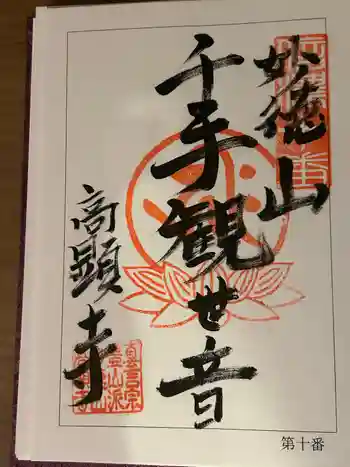 妙徳山
千手観世音
高顕寺
真言宗
第十番